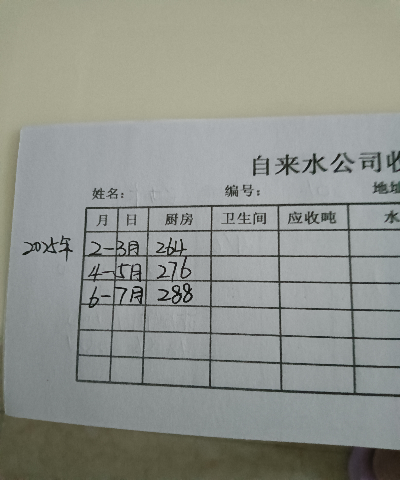 自来水公司收
姓名: 编号: 地址
月 日 厨房 卫生间 应收吨 水
2025年 2-3月 264
4-5月 276
6-7月 288